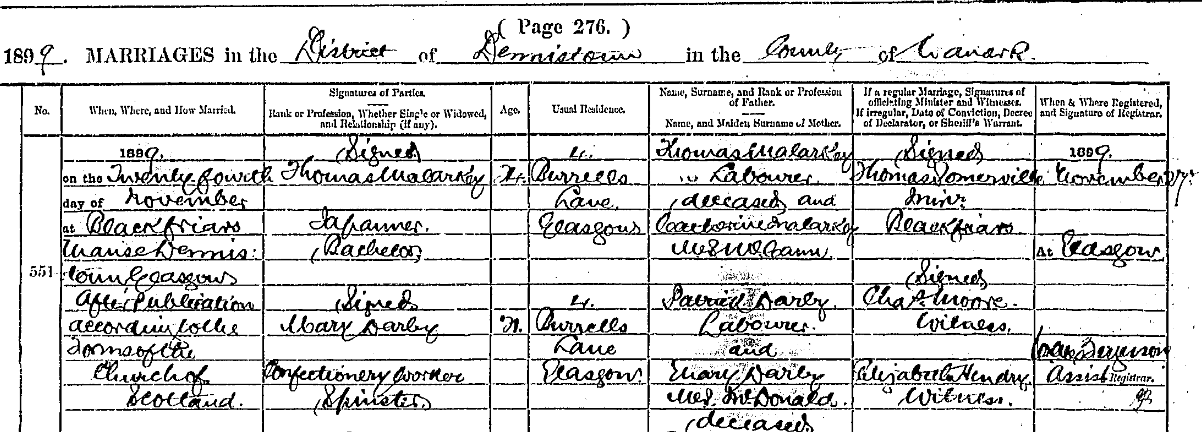 ( Page 276. )
1899. MARRIAGES in the District of Dennistoun in the County of Lanark.
No.
When, Where, and How Married.
Signatures of Parties.
Rank or Profession, Whether Single or Widowed,
and Relationship (if any).
Age.
Usual Residence.
Name, Surname, and Rank or Profession
of Father.
Name, and Maiden Surname of Mother.
If a regular Marriage, Signatures of
officiating Minister and Witnesses.
If irregular, Date of Conviction, Decree
of Declarator, or Sheriff's Warrant.
When & Where Registered,
and Signature of Registrar.
551
1899.
on the Twenty fourth
day of November
at Blackfriars
Manse Dennis:
toun Glasgow
After Publication
according to the
Forms of the
Church of
Scotland.
(Signed)
Thomas Malarkey
Japanner.
(Bachelor)
(Signed)
Mary Darby
Confectionery Worker
(Spinster)
4.
Burrells
Lane
Glasgow
4.
Burrells
Lane
Glasgow
Thomas Malarkey
Labourer.
(deceased) and
Catherine Malarkey
M.S. McCann.
Patrick Darby
Labourer.
and
Mary Darby
M.S. McDonald.
(deceased)
(Signed)
Thomas Somerville
Minr.
Blackfriars
(Signed)
Chas. Moore.
Witness.
Elizabeth Hendry
Witness.
1899.
November 27th
At Glasgow
Ferguson
Assist Registrar.